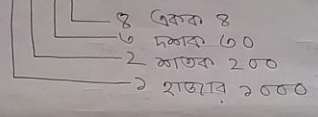 ৪ একক ৪
৩ দশক ৩০
২ শতক ২০০
১ হাজার ১০০০